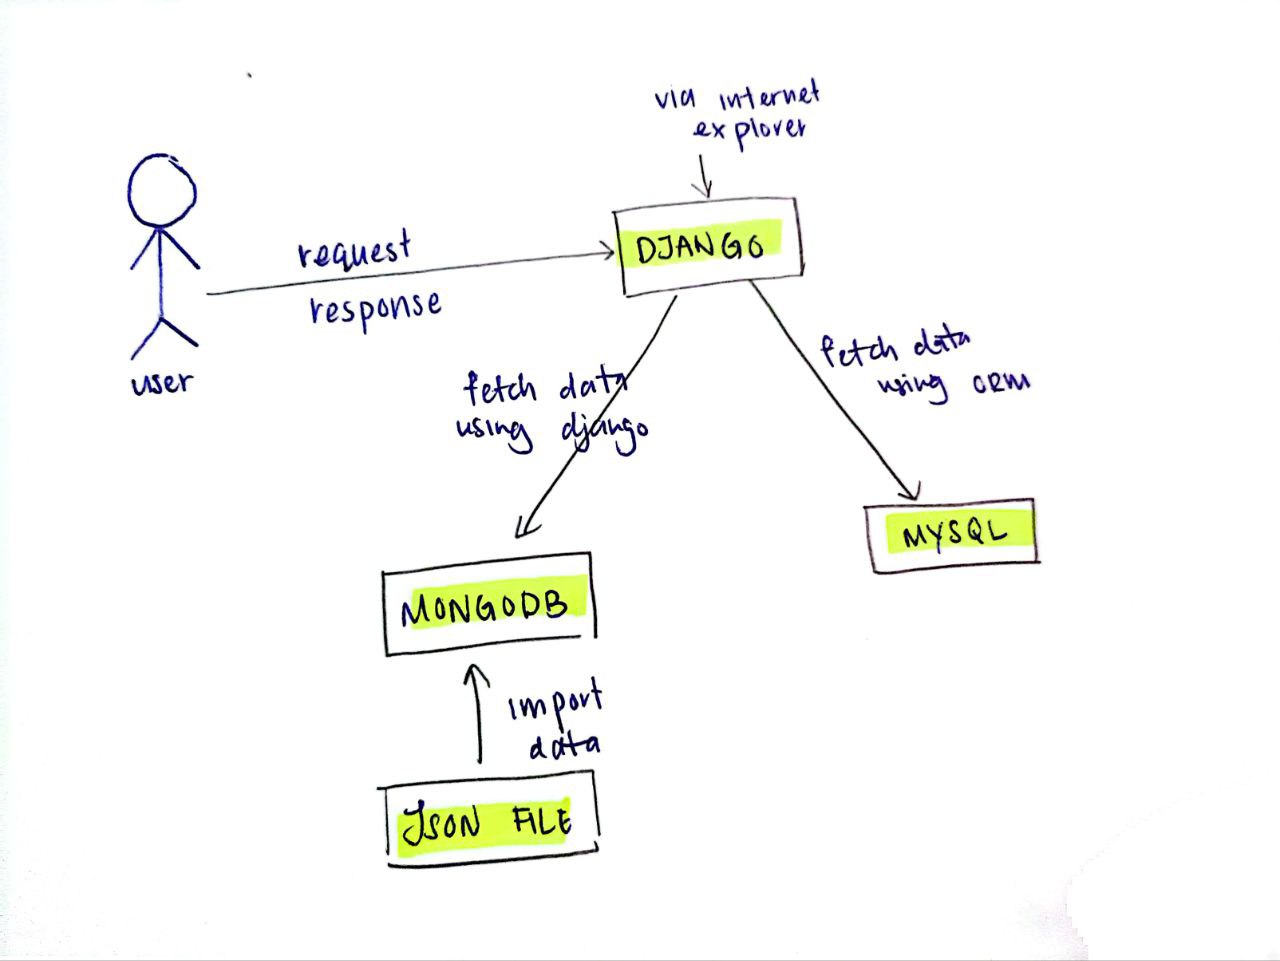 via internet
explorer
DJANGO
request
response
user
fetch data
using django
fetch data
using ORM
MYSQL
MONGODB
import
data
JSON FILE